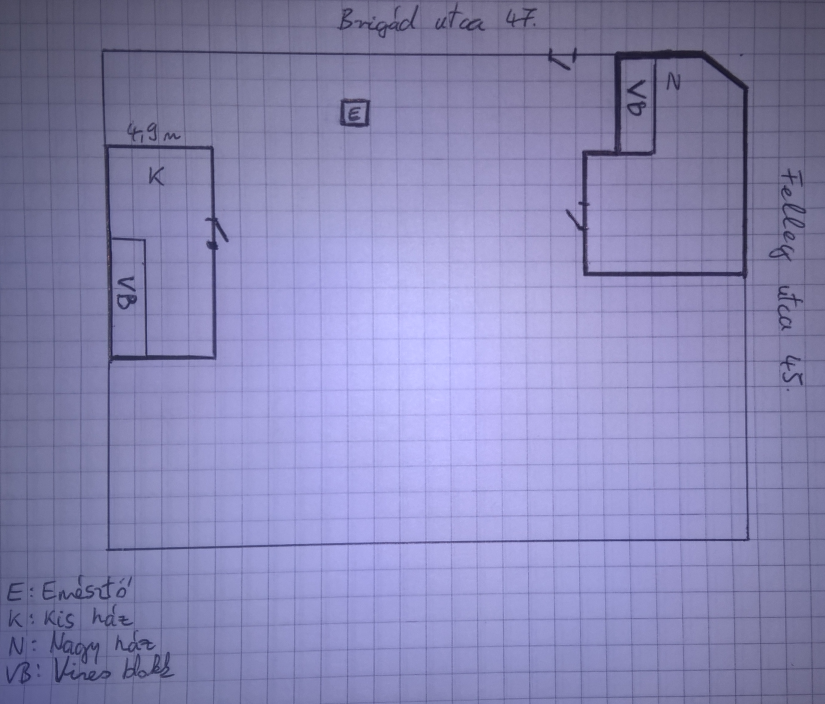 Brigád utca 47.
E
VB
N
4,9 m
K
VB
Felleg utca 45.
E: Emésztő
K: Kis ház
N: Nagy ház
VB: Vizes blokk